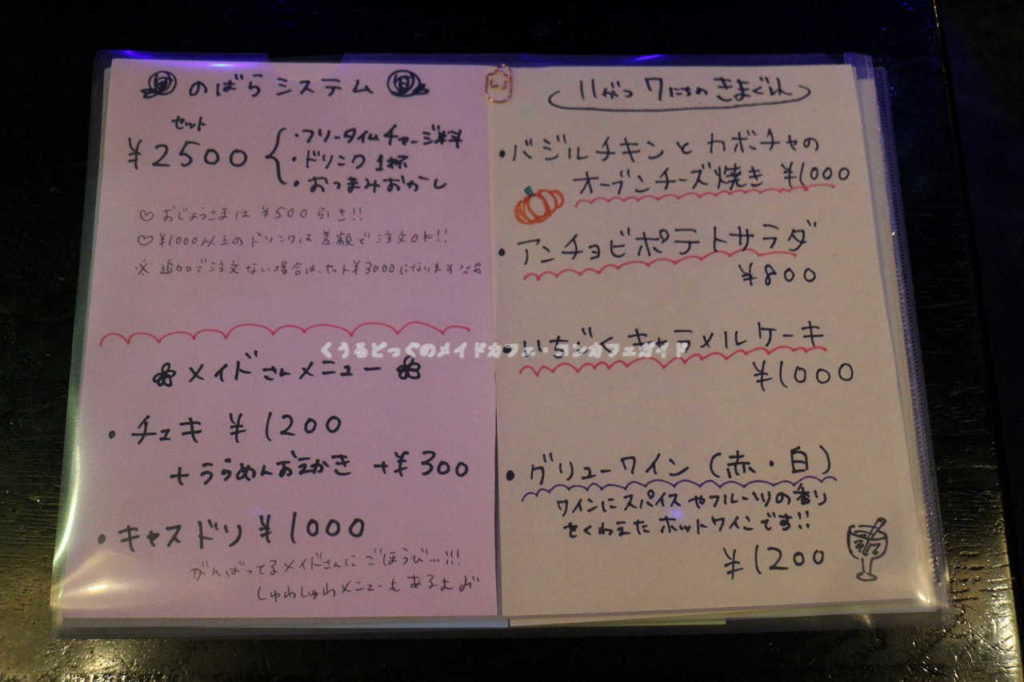 のばらシステム
セット
¥2500
・フリータイムチャージ料
・ドリンク1杯
・おつまみおかし
♡おじょうさまは¥500引き!!
♡¥1000以上のドリンクは差額で注文OK!!
※追加ご注文ない場合は、セット¥3000になります
メイドさんメニュー
・チェキ ¥1200
+うらめんおえかき +¥300
・キャスドリ ¥1000
がんばってるメイドさんにごほうび…!!!
しゅわしゅわメニューもあるよ
11がつ7にちのきまぐれ
・バジルチキンとカボチャの
オーブンチーズ焼き ¥1000
・アンチョビポテトサラダ
¥800
・いちじくキャラメルケーキ
¥1000
・グリューワイン(赤・白)
ワインにスパイスやフルーツの香り
をくわえたホットワインです!!
¥1200
くうるどっぐのメイドカフェ・コンカフェガイド